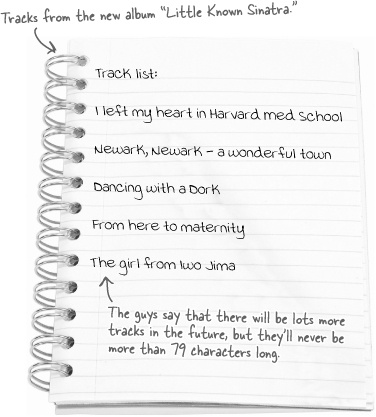 Tracks from the new album “Little Known Sinatra.”
Track list:
I left my heart in Harvard med School
Newark, Newark - a wonderful town
Dancing with a Dork
From here to maternity
The girl from Iwo Jima
The guys say that there will be lots more
tracks in the future, but they'll never be
more than 79 characters long.